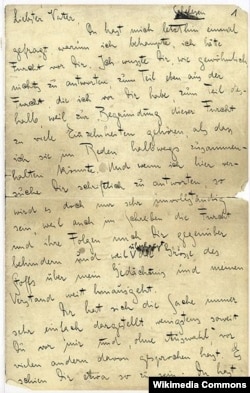 Liebster Vater,
Du hast mich letzthin einmal 1
gefragt warum ich behaupte, ich hätte
Furcht vor Dir. Ich wusste Dir wie gewöhnlich
nichts zu antworten zum Teil eben aus der
Furcht die ich vor Dir habe zum Teil des-
halb weil zur Begründung dieser Furcht
zu viele Einzelheiten gehören als dass
ich sie im Reden halbwegs zusammen-
halten könnte. Und wenn ich hier ver-
suche Dir schriftlich zu antworten so
wird es doch nur sehr unvollständig
sein weil auch im Schreiben die Furcht
und ihre Folgen mich Dir gegenüber
behindern und weil Grösse des
Stoffs über mein Gedächtnis und meinen
Verstand weit hinausgeht.
Dir hat sich die Sache immer
sehr einfach dargestellt wenigstens soweit
Du vor mir und ohne Auswahl vor
vielen andern davon gesprochen hast. Es
schien Dir etwa so zu sein: Du hast
Wikimedia Commons